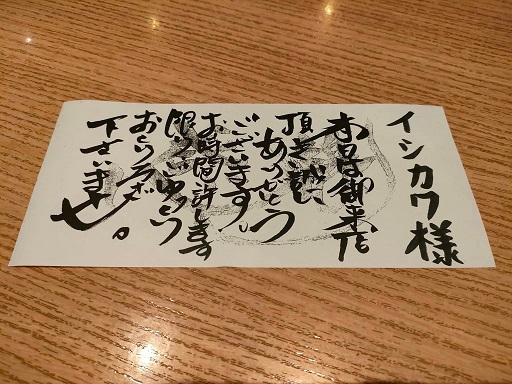 イシカワ様
本日は御来店
頂き誠に
ありがとう
ございます。
お時間許します
限りごゆるり
おくつろぎ
下さいませ。